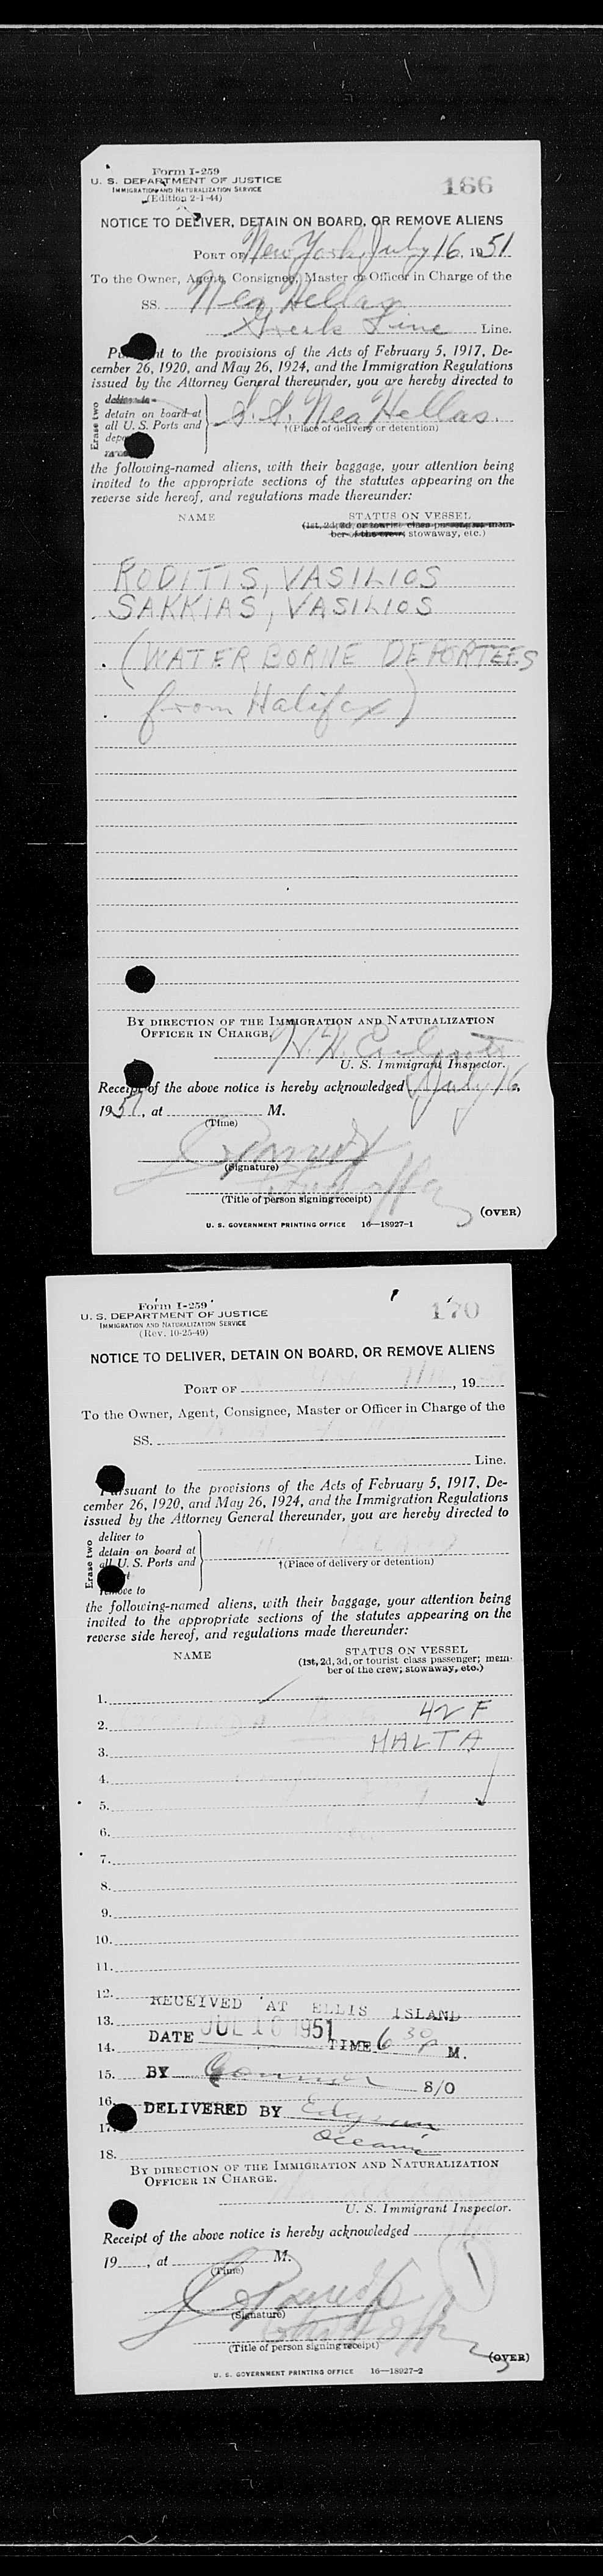 Form I-259
U. S. DEPARTMENT OF JUSTICE
IMMIGRATION AND NATURALIZATION SERVICE
(Edition 2-1-44)
166
NOTICE TO DELIVER, DETAIN ON BOARD, OR REMOVE ALIENS
PORT OF New York, July 16, 1951
To the Owner, Agent, Consignee, Master or Officer in Charge of the
SS. Nea Hellas
Greek Line Line.
t to the provisions of the Acts of February 5, 1917, De-
cember 26, 1920, and May 26, 1924, and the Immigration Regulations
issued by the Attorney General thereunder, you are hereby directed to
Erase two
deliver to
detain on board at
all U. S. Ports and
S.S. Nea Hellas.
†(Place of delivery or detention)
the following-named aliens, with their baggage, your attention being
invited to the appropriate sections of the statutes appearing on the
reverse side hereof, and regulations made thereunder:
NAME
STATUS ON VESSEL
(1st, 2d, 3d, or tourist class passenger; mem-
ber of the crew; stowaway, etc.)
RODITIS, VASILIOS
SAKKIAS, VASILIOS
(WATERBORNE DEPORTEES
from Halifax)
BY DIRECTION OF THE IMMIGRATION AND NATURALIZATION
OFFICER IN CHARGE.
U. S. Immigrant Inspector.
Receipt of the above notice is hereby acknowledged July 16,
1951, at M.
(Time)
(Signature)
(Title of person signing receipt)
(OVER)
U. S. GOVERNMENT PRINTING OFFICE 16—18927-1
Form I-259
U. S. DEPARTMENT OF JUSTICE
IMMIGRATION AND NATURALIZATION SERVICE
(Rev. 10-25-49)
170
NOTICE TO DELIVER, DETAIN ON BOARD, OR REMOVE ALIENS
PORT OF , 19
To the Owner, Agent, Consignee, Master or Officer in Charge of the
SS.
Line.
Pursuant to the provisions of the Acts of February 5, 1917, De-
cember 26, 1920, and May 26, 1924, and the Immigration Regulations
issued by the Attorney General thereunder, you are hereby directed to
Erase two
deliver to
detain on board at
all U. S. Ports and
remove to
†(Place of delivery or detention)
the following-named aliens, with their baggage, your attention being
invited to the appropriate sections of the statutes appearing on the
reverse side hereof, and regulations made thereunder:
NAME
STATUS ON VESSEL
(1st, 2d, 3d, or tourist class passenger; mem-
ber of the crew; stowaway, etc.)
1.
2. 42 F
3. MALTA
4.
5.
6.
7.
8.
9.
10.
11.
12.
RECEIVED AT ELLIS ISLAND
13.
DATE JUL 16 1951 TIME 6 30 P M.
14.
15. BY S/O
16. DELIVERED BY
17. Oceanic
18.
BY DIRECTION OF THE IMMIGRATION AND NATURALIZATION
OFFICER IN CHARGE.
U. S. Immigrant Inspector.
Receipt of the above notice is hereby acknowledged
19, at M.
(Time)
(Signature)
(Title of person signing receipt)
(OVER)
U. S. GOVERNMENT PRINTING OFFICE 16—18927-2